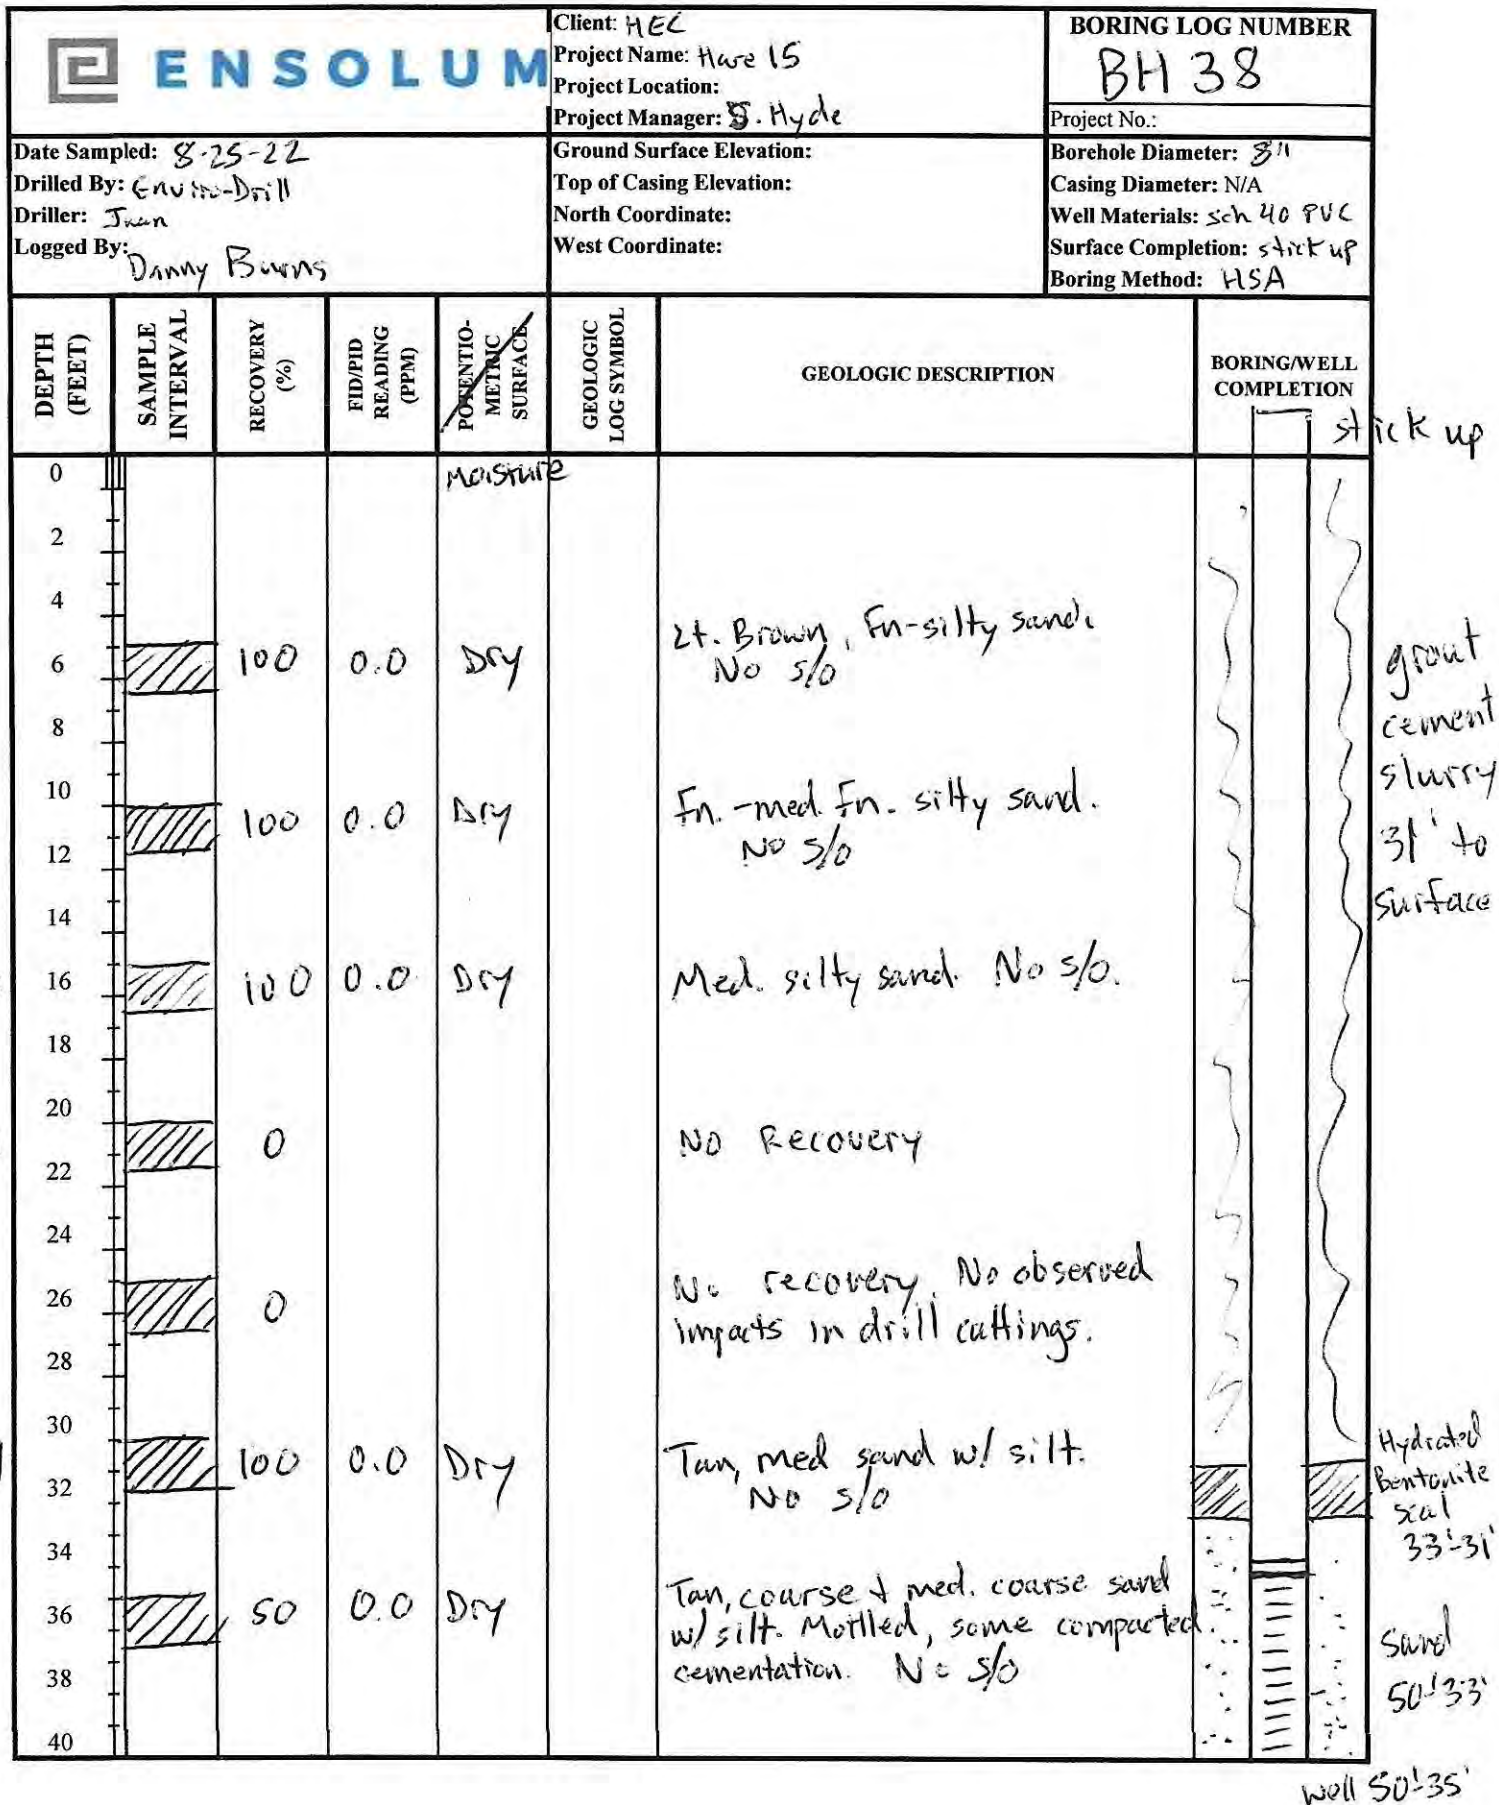 ENSOLUM
Client: HEC
Project Name: Hare 15
Project Location:
Project Manager: S. Hyde
BORING LOG NUMBER
BH 38
Project No.:
Date Sampled: 8-25-22
Drilled By: Enviro-Drill
Driller: Juan
Logged By: Danny Burns
Ground Surface Elevation:
Top of Casing Elevation:
North Coordinate:
West Coordinate:
Borehole Diameter: 8"
Casing Diameter: N/A
Well Materials: sch 40 PVC
Surface Completion: stick up
Boring Method: HSA
DEPTH (FEET)
SAMPLE INTERVAL
RECOVERY (%)
FID/PID READING (PPM)
POTENTIO-METRIC SURFACE
GEOLOGIC LOG SYMBOL
GEOLOGIC DESCRIPTION
BORING/WELL COMPLETION
stick up
0
Moisture
2
4
Lt. Brown, Fn-silty sand.
6 100 0.0 Dry No s/o
grout
cement
slurry
31' to
surface
8
10
Fn.-med. Fn. silty sand.
100 0.0 Dry
No s/o
12
14
16 100 0.0 Dry Med. silty sand. No s/o.
18
20
0 No Recovery
22
24
No recovery. No observed
26 0 impacts in drill cuttings.
28
30
100 0.0 Dry Tan, med sand w/ silt.
No s/o
32
Hydrated
Bentonite
seal
33'-31'
34
Tan, coarse + med. coarse sand
36 50 0.0 Dry w/ silt. Mottled, some compacted
cementation. No s/o
38
Sand
50'-33'
40
well 50'-35'